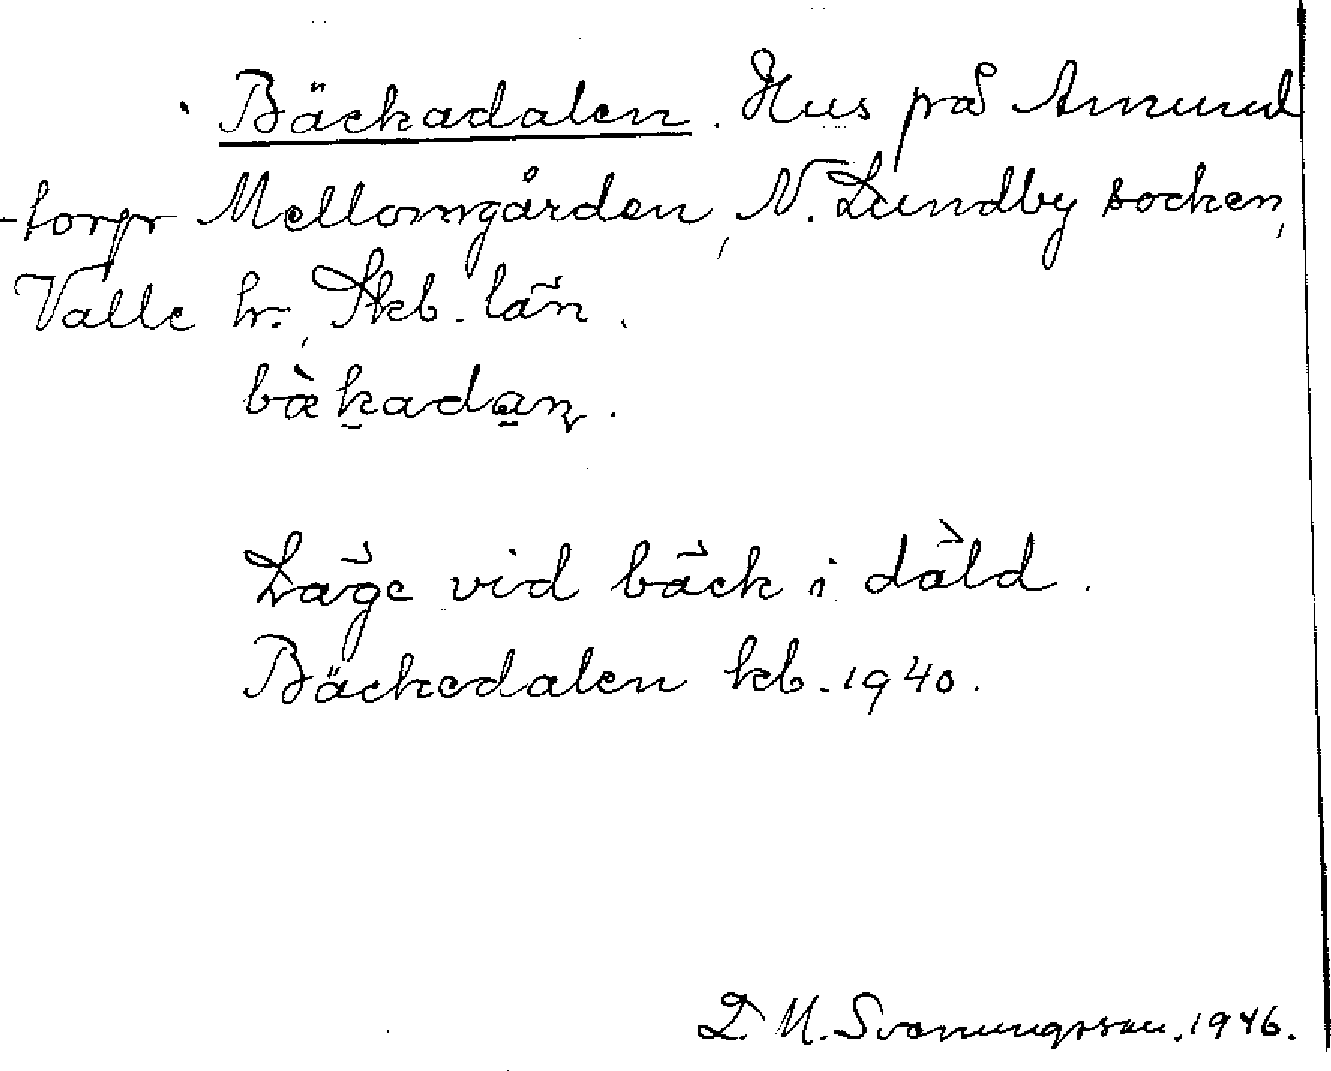 Bäckadalen. Hus på Amund
-torp Mellomgården, N. Lundby socken,
Valle hr., Skb. län.
bæ̀kadan.
Läge vid bäck i däld.
Bäckedalen kb. 1940.
D. M. Svanungsson. 1946.